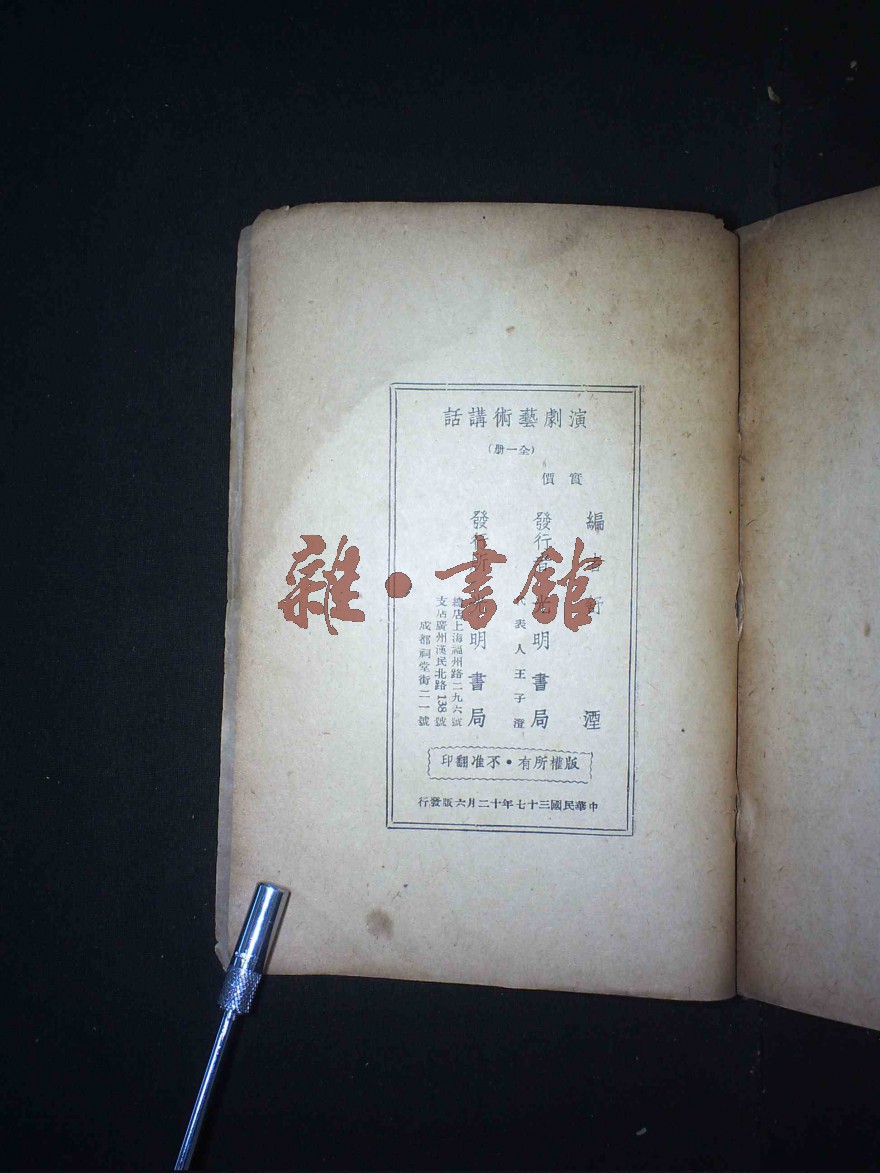 演劇藝術講話
(全一册)
實價
編者舒湮
發行者光明書局
代表人王子澄
發行所光明書局
總店上海福州路二九六號
支店廣州漢民北路138號
成都祠堂街二一號
版權所有•不准翻印
中華民國三十七年十二月六版發行
雜•書館